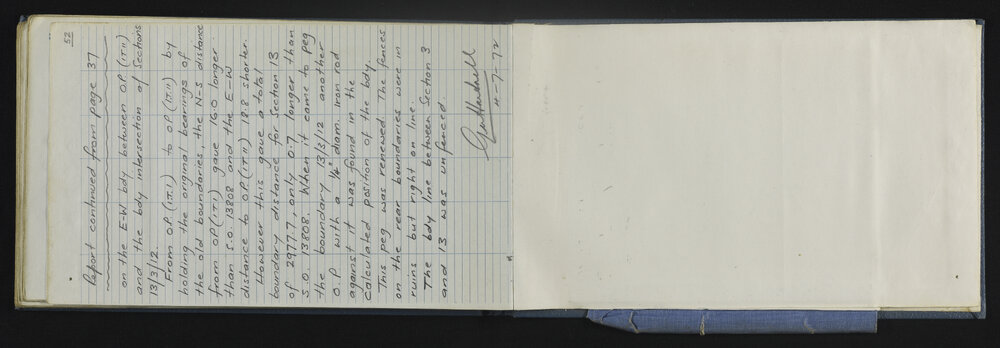 52
Report continued from page 37
on the E-W bdy. between O.P (IT II)
and the bdy intersection of Sections
13/3/12.
From O.P (IT.I) to O.P (IT.II) by
holding the original bearings of
the old boundaries, the N-S distance
from O.P (IT I) gave 16.0 longer
than S.O. 13808 and the E-W
distance to O.P. (IT II) 18.8 shorter.
However this gave a total
boundary distance for Section 13
of 2977.7, only 0.7 longer than
S.O. 13808. When it came to peg
the boundary 13/3/12 another
O.P with a 1/4" diam. iron rod
against it was found in the
calculated position of the bdy.
This peg was renewed. The fences
on the rear boundaries were in
ruins but right on line.
The bdy line between Section 3
and 13 was unfenced.
4-7-72